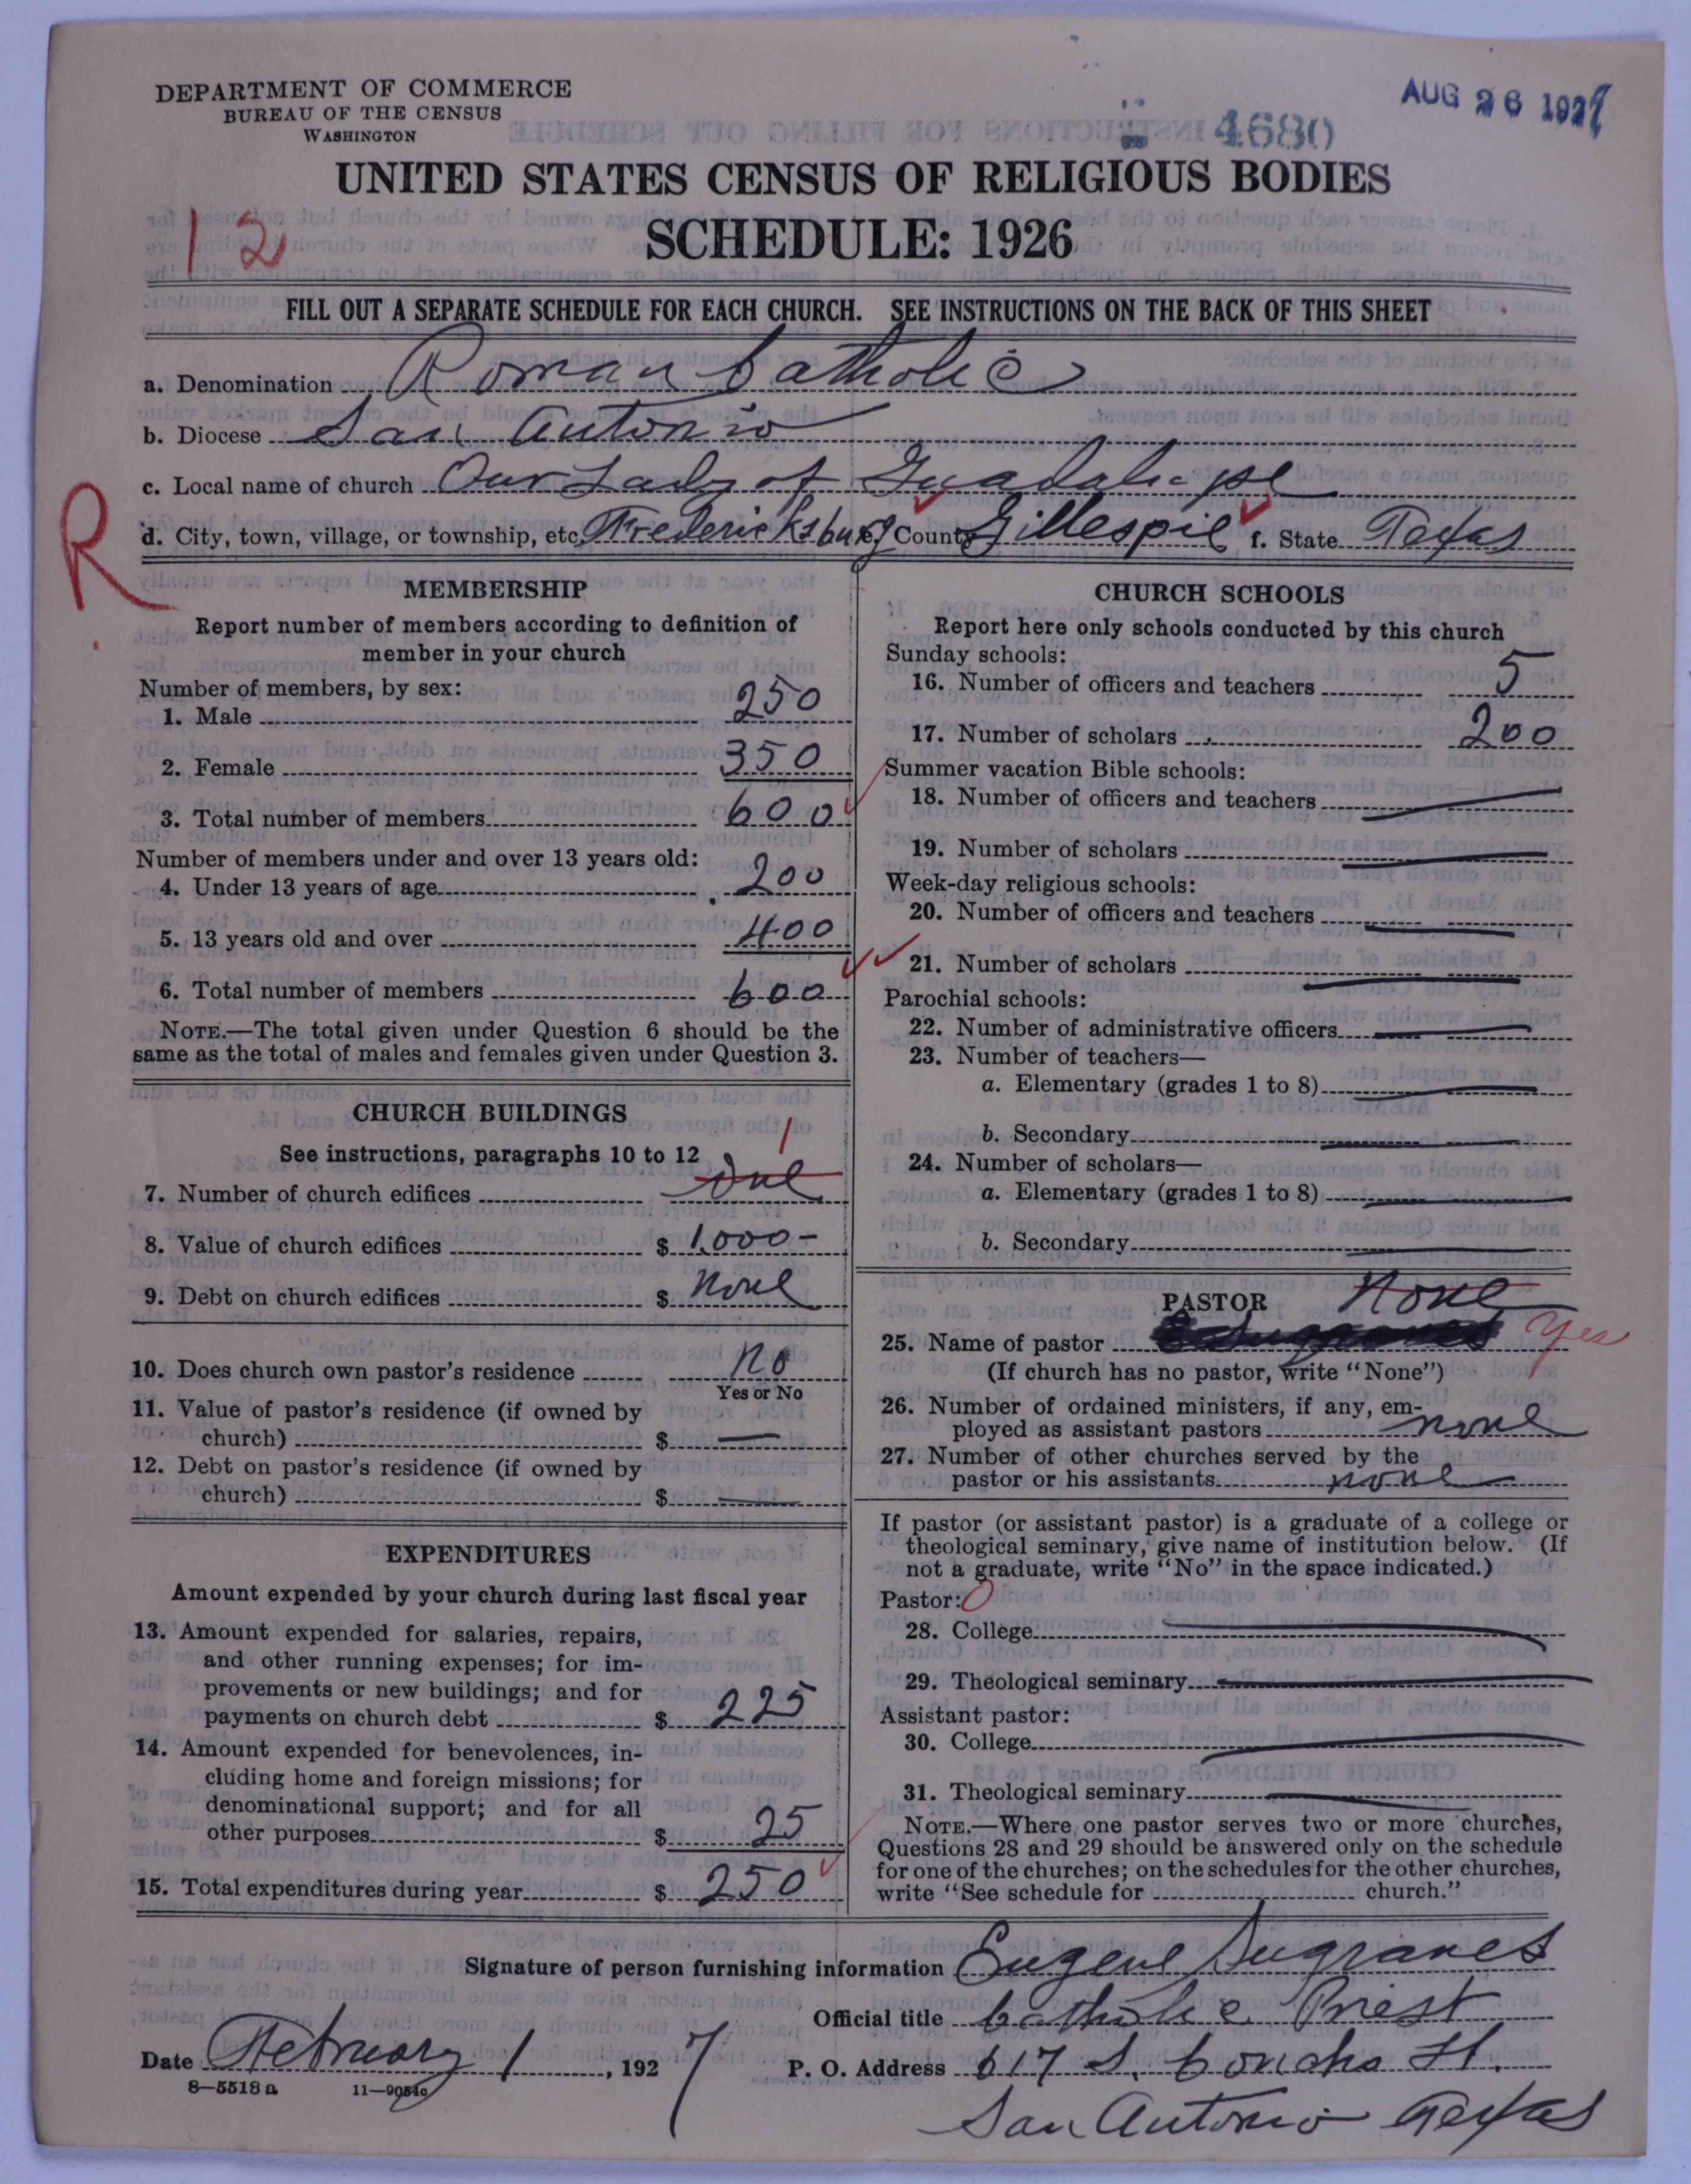 DEPARTMENT OF COMMERCE
BUREAU OF THE CENSUS
WASHINGTON
AUG 26 1927
4680
UNITED STATES CENSUS OF RELIGIOUS BODIES
SCHEDULE: 1926
12
FILL OUT A SEPARATE SCHEDULE FOR EACH CHURCH. SEE INSTRUCTIONS ON THE BACK OF THIS SHEET
a. Denomination Roman Catholic
b. Diocese San Antonio
c. Local name of church Our Lady of Guadalupe
R
d. City, town, village, or township, etc. Fredericksburg e. County Gillespie f. State Texas
MEMBERSHIP
Report number of members according to definition of
member in your church
Number of members, by sex:
1. Male 250
2. Female 350
3. Total number of members 600
Number of members under and over 13 years old:
4. Under 13 years of age 200
5. 13 years old and over 400
6. Total number of members 600
NOTE.—The total given under Question 6 should be the
same as the total of males and females given under Question 3.
CHURCH BUILDINGS
See instructions, paragraphs 10 to 12
1
7. Number of church edifices One
8. Value of church edifices $ 1,000-
9. Debt on church edifices $ none
10. Does church own pastor's residence no
Yes or No
11. Value of pastor's residence (if owned by
church) $ —
12. Debt on pastor's residence (if owned by
church) $ —
EXPENDITURES
Amount expended by your church during last fiscal year
13. Amount expended for salaries, repairs,
and other running expenses; for im-
provements or new buildings; and for
payments on church debt $ 225
14. Amount expended for benevolences, in-
cluding home and foreign missions; for
denominational support; and for all
other purposes $ 25
15. Total expenditures during year $ 250
CHURCH SCHOOLS
Report here only schools conducted by this church
Sunday schools:
16. Number of officers and teachers 5
17. Number of scholars 200
Summer vacation Bible schools:
18. Number of officers and teachers —
19. Number of scholars —
Week-day religious schools:
20. Number of officers and teachers —
21. Number of scholars —
Parochial schools:
22. Number of administrative officers —
23. Number of teachers—
a. Elementary (grades 1 to 8) —
b. Secondary —
24. Number of scholars—
a. Elementary (grades 1 to 8) —
b. Secondary —
PASTOR None
25. Name of pastor Yes
(If church has no pastor, write "None")
26. Number of ordained ministers, if any, em-
ployed as assistant pastors none
27. Number of other churches served by the
pastor or his assistants none
If pastor (or assistant pastor) is a graduate of a college or
theological seminary, give name of institution below. (If
not a graduate, write "No" in the space indicated.)
Pastor: 0
28. College —
29. Theological seminary —
Assistant pastor:
30. College —
31. Theological seminary —
NOTE.—Where one pastor serves two or more churches,
Questions 28 and 29 should be answered only on the schedule
for one of the churches; on the schedules for the other churches,
write "See schedule for church."
Signature of person furnishing information Eugene Sugranes
Official title Catholic Priest
Date February 1, 1927 P. O. Address 617 S. Concho St.
8—5518 a 11—9051c
San Antonio Texas